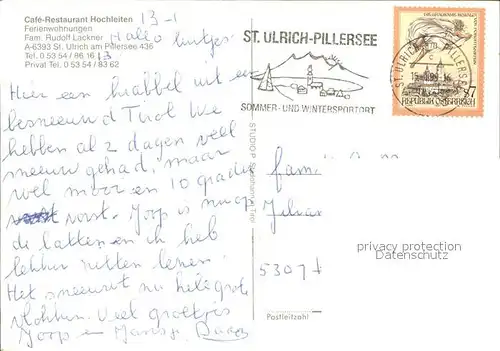 Café-Restaurant Hochleiten
Ferienwohnungen
Fam. Rudolf Lackner
A-6393 St. Ulrich am Pillersee 436
Tel. 0 53 54 / 86 16 13
Privat Tel. 0 53 54 / 83 62
13-1
Hallo
Hier een krabbel uit een
besneeuwd Tirol We
hebben al 2 dagen veel
sneeuw gehad, maar
wel mooi en 10 graden
vorst. Joop is nu op
de latten en ik heb
lekker zitten lezen.
Het sneeuwt nu hele grote
vlokken. Veel groetjes
Joop en
ST. ULRICH-PILLERSEE
SOMMER- UND WINTERSPORTORT
ST. ULRICH PILLERSEE
REPUBLIK ÖSTERREICH
S 7
STUDIO P.
fam
5307
Postleitzahl
privacy protection
watermark